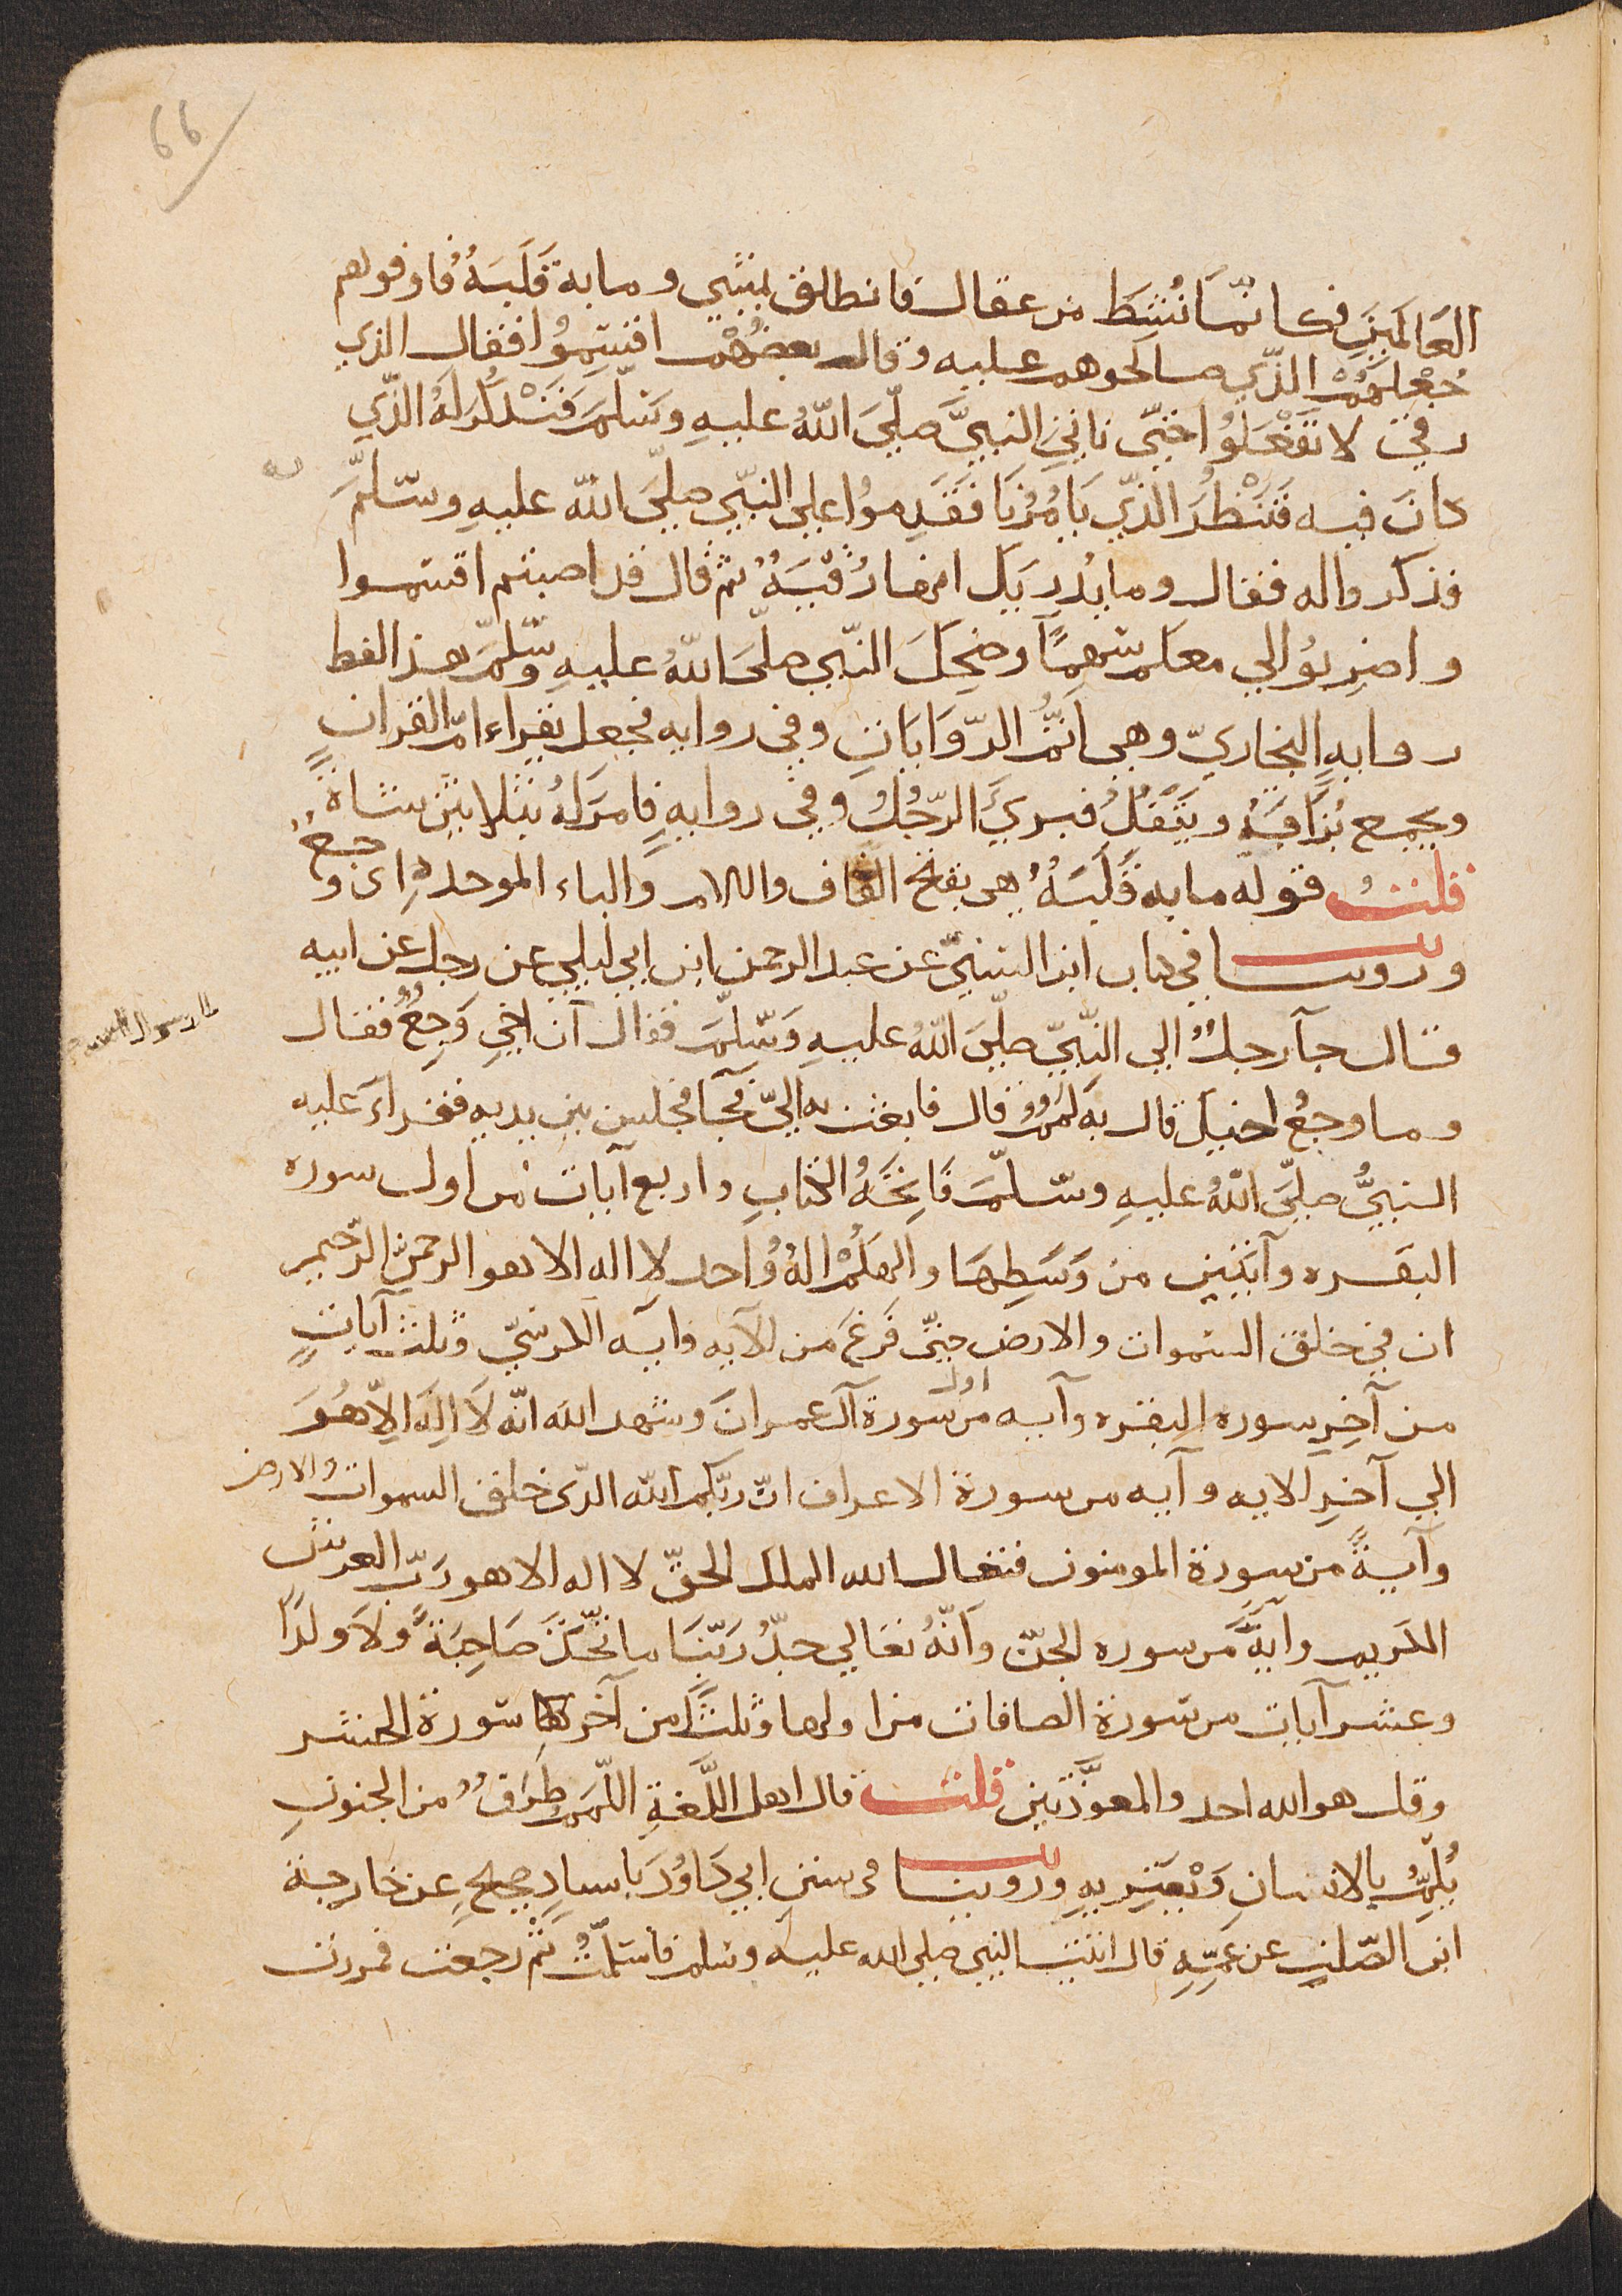 66
العَالمَينَ فكانمّا نُشِطَ من عقال فانطلق يمشي وما به قَلَبَةُ فاوفوهم
جُعْلَهُمْ الذّي صالحوهم عليه وقال بعضُهُم اقتسِمُوا فقال الذي
رقي لا تَفْعَلوُا حَتيّ ناتي النبيَّ صَليَّ اللّهُ عليهِ وسَلّمَ فَنَذْكُرَ لهُ الذّي
كانَ فيه فَنَنْظُرَ الذّي يَامُرُنَا فَقَدِموُا علي النبّي صليَّ اللّه عليهِ وسّلمَّ
فذكروا له فقال وما يُدريك انها رُقْيَةُ ثم قال قد اصبتم اقتسموا
واضرِبوُا لي معكم سَهمًا وضحِكَ النبّي صليَّ اللّهُ عليهِ وسّلمّ هذا لفظ
روايهِ البخاريّ وهي اتَمُّ الرّوَايَاتِ وفي روايه فجعل يقراء امّ القران
ويجمع بُزَاقَهُ ويَتْفُلُ فبريَ الرّجُلُ وفي روايهٍ فامَرَ لهُ بثلاثين شاةً
قلتُ قوله ما به قَلَبَهُ هي بفتح القاف واللام والباء الموحدهِ اى وجعُ
وروينا في كتاب ابن السّنيّ عن عبد الرحمن ابن ابي ليلي عن رجل عن ابيه
قال جآ رجلُ الي النِّبيّ صليّ اللّهُ عليهِ وَسّلمّ فقال ان اخي وَجِعُ فقال
يا رسول الله
وما وجعُ اخيك قال به لَمَمُ قال فابعث به اليّ فجآ فجلس بين يديه فقراءَ عليه
النبيُّ صليَّ اللّهُ عليهِ وسّلمّ فَاتِحَةُ الكتابِ واربع آيات من اول سوره
البقره وآيتين من وَسَطِهَا والهكُمْ الهُ وُاحد لا اله الا هو الرحمنّ الرّحيم
ان في خلق السّموات والارض حتيّ فَرغَ من الآيه وايه الكرسيّ وثلث آياتٍ
من آخِرِ سوره البقره وآيه من اول سورة آل عمران وشهد الله انّه لاَ الِهَ الاّ هُوَ
الي آخرِ الايه وآيه من سورة الاعراف انّ ربّكم اللّه الذّى خلق السموات والارض
وآيةً من سورة المومنون فتعال الله الملك الحقّ لا اله الا هو رَبّ العرش
الكريم وآيةً من سوره الجنّ وانّهُ تعَالي جدُّ رَبّنَا ما اتّخَذَ صَاحِبَةً ولاَ ولدًا
وعشر آيات من سورة الصافات من اولها وثلثًا من آخر كا سورة الحشر
وقل هو الله احد والمعوَّذتين قلت قال اهل اللّغةِ اللّمَمُ طرَفُ من الجنونِ
يُلِمُّ بالانسانِ وَيْعَتريهِ وروينا في سننِ ابي دَاوُدَ باسنادٍ صحيحٍ عن خارجة
ابن الصّلتِ عن عَمِّهِ قال اتيت النبي صلي الله عليه وسلم فاسَلَمْتُ ثُم رجعت فمررت